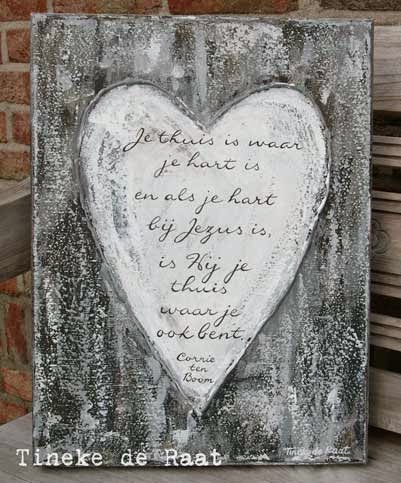 Je thuis is waar
je hart is
en als je hart
bij Jezus is,
is Hij je
thuis
waar je
ook bent.
Corrie
ten
Boom
Tineke de Raat
Tineke de Raat